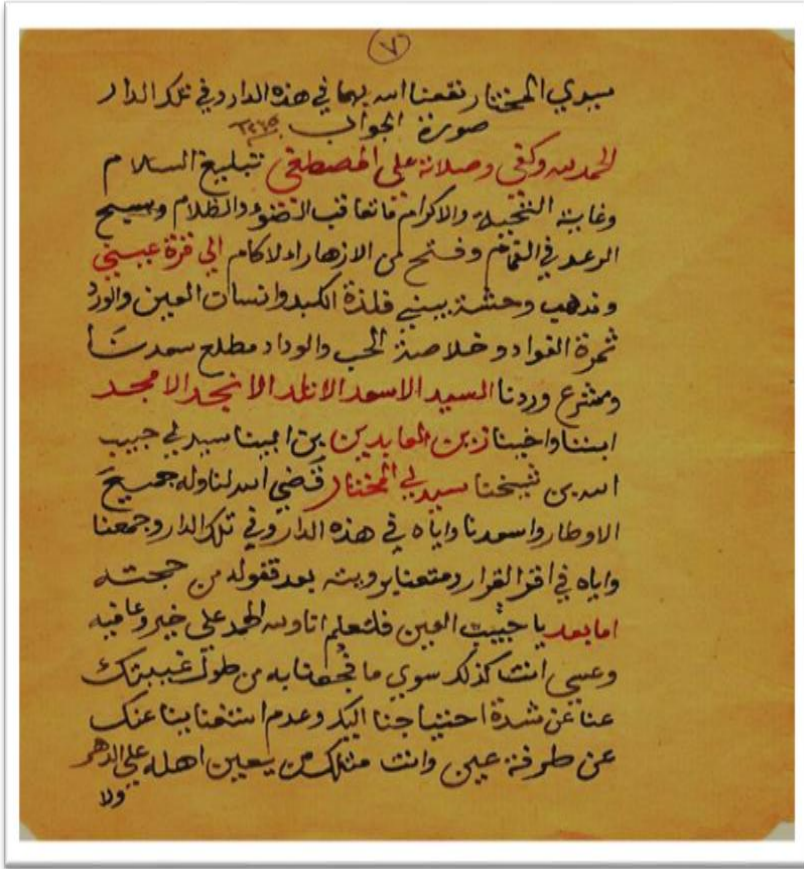 ٧
سيدي المختار نفعنا الله بهما في هذه الدار وفي تلك الدار
صورة الجواب
الحمد لله وكفى وصلاته على المصطفى تبليغ السلام
وغاية التحية والاكرام ما تعاقب الضوء والظلام وسبح
الرعد في الغمام وفتح من الازهار الاكمام الي قرة عيني
ومذهب وحشة بيني فلذة الكبد وانسان العين والورد
ثمرة الفواد وخلاصة الحب والوداد مطلع سعدنا
ومشرع وردنا السيد الاسعد الاتلد الانجد الامجد
ابننا واخينا زين العابدين بن ابينا سيدي حبيب
الله بن شيخنا سيدي المختار قضي الله لنا وله جميع
الاوطار واسعدنا واياه في هذه الدار وفي تلك الدار وجمعنا
واياه في اقر القرار ومتعنا برويته بعد قفوله من حجته
اما بعد يا حبيب العين فلتعلم انا ولله الحمد علي خير وعافيه
وعسي انت كذلك سوي ما فجعنا به من طول غيبتك
عنا عن شدة احتياجنا اليك وعدم استغناينا عنك
عن طرفة عين وانت مثلك من يعين اهله علي الدهر
ولا